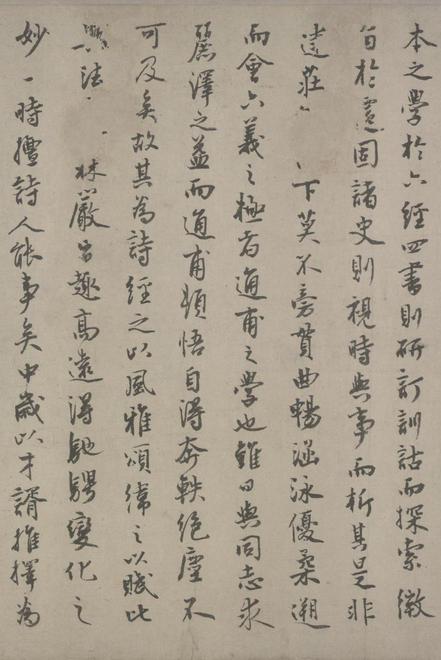 本之學於六經四書則研訂訓詁而探索徵
旨於憲固諸史則視時與事而析其是非
遠莊 下莫不旁貫曲暢涵泳優柔遡
而會六義之極者通甫之學也雖日與同志求
麗澤之益而通甫頓悟自得奔軼絕塵不
可及矣故其為詩經之以風雅頌緯之以賦比
興法 林嚴古趣高遠得馳騁變化之
妙一時擅詩人能事矣中歲以才諝推擇為